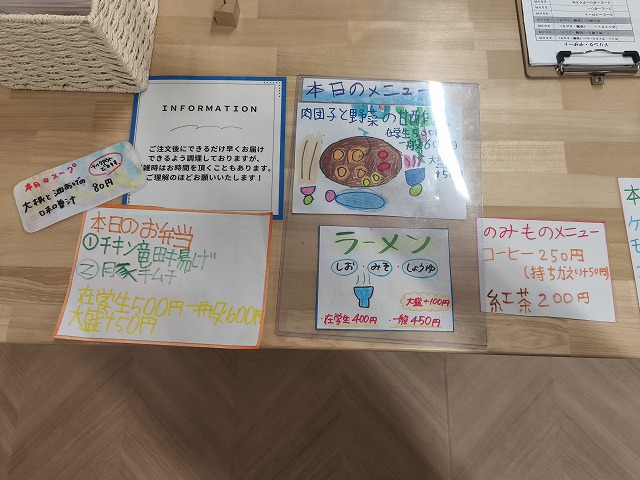 INFORMATION
ご注文後にできるだけ早くお届け
できるよう調理しておりますが、
雑時はお時間を頂くこともあります。
ご理解のほどお願いいたします!
本日のスープ
大根と油あげの
味噌汁
80円
本日のお弁当
①チキン竜田揚げ
②豚キムチ
在学生500円 一般600円
大盛+50円
本日のメニュー
肉団子と野菜の甘酢
在学生500
大盛
+50
ラーメン
しお・みそ・しょうゆ
大盛+100円
・在学生400円 ・一般450円
のみものメニュー
コーヒー250円
(持ちかえり+50円)
紅茶200円